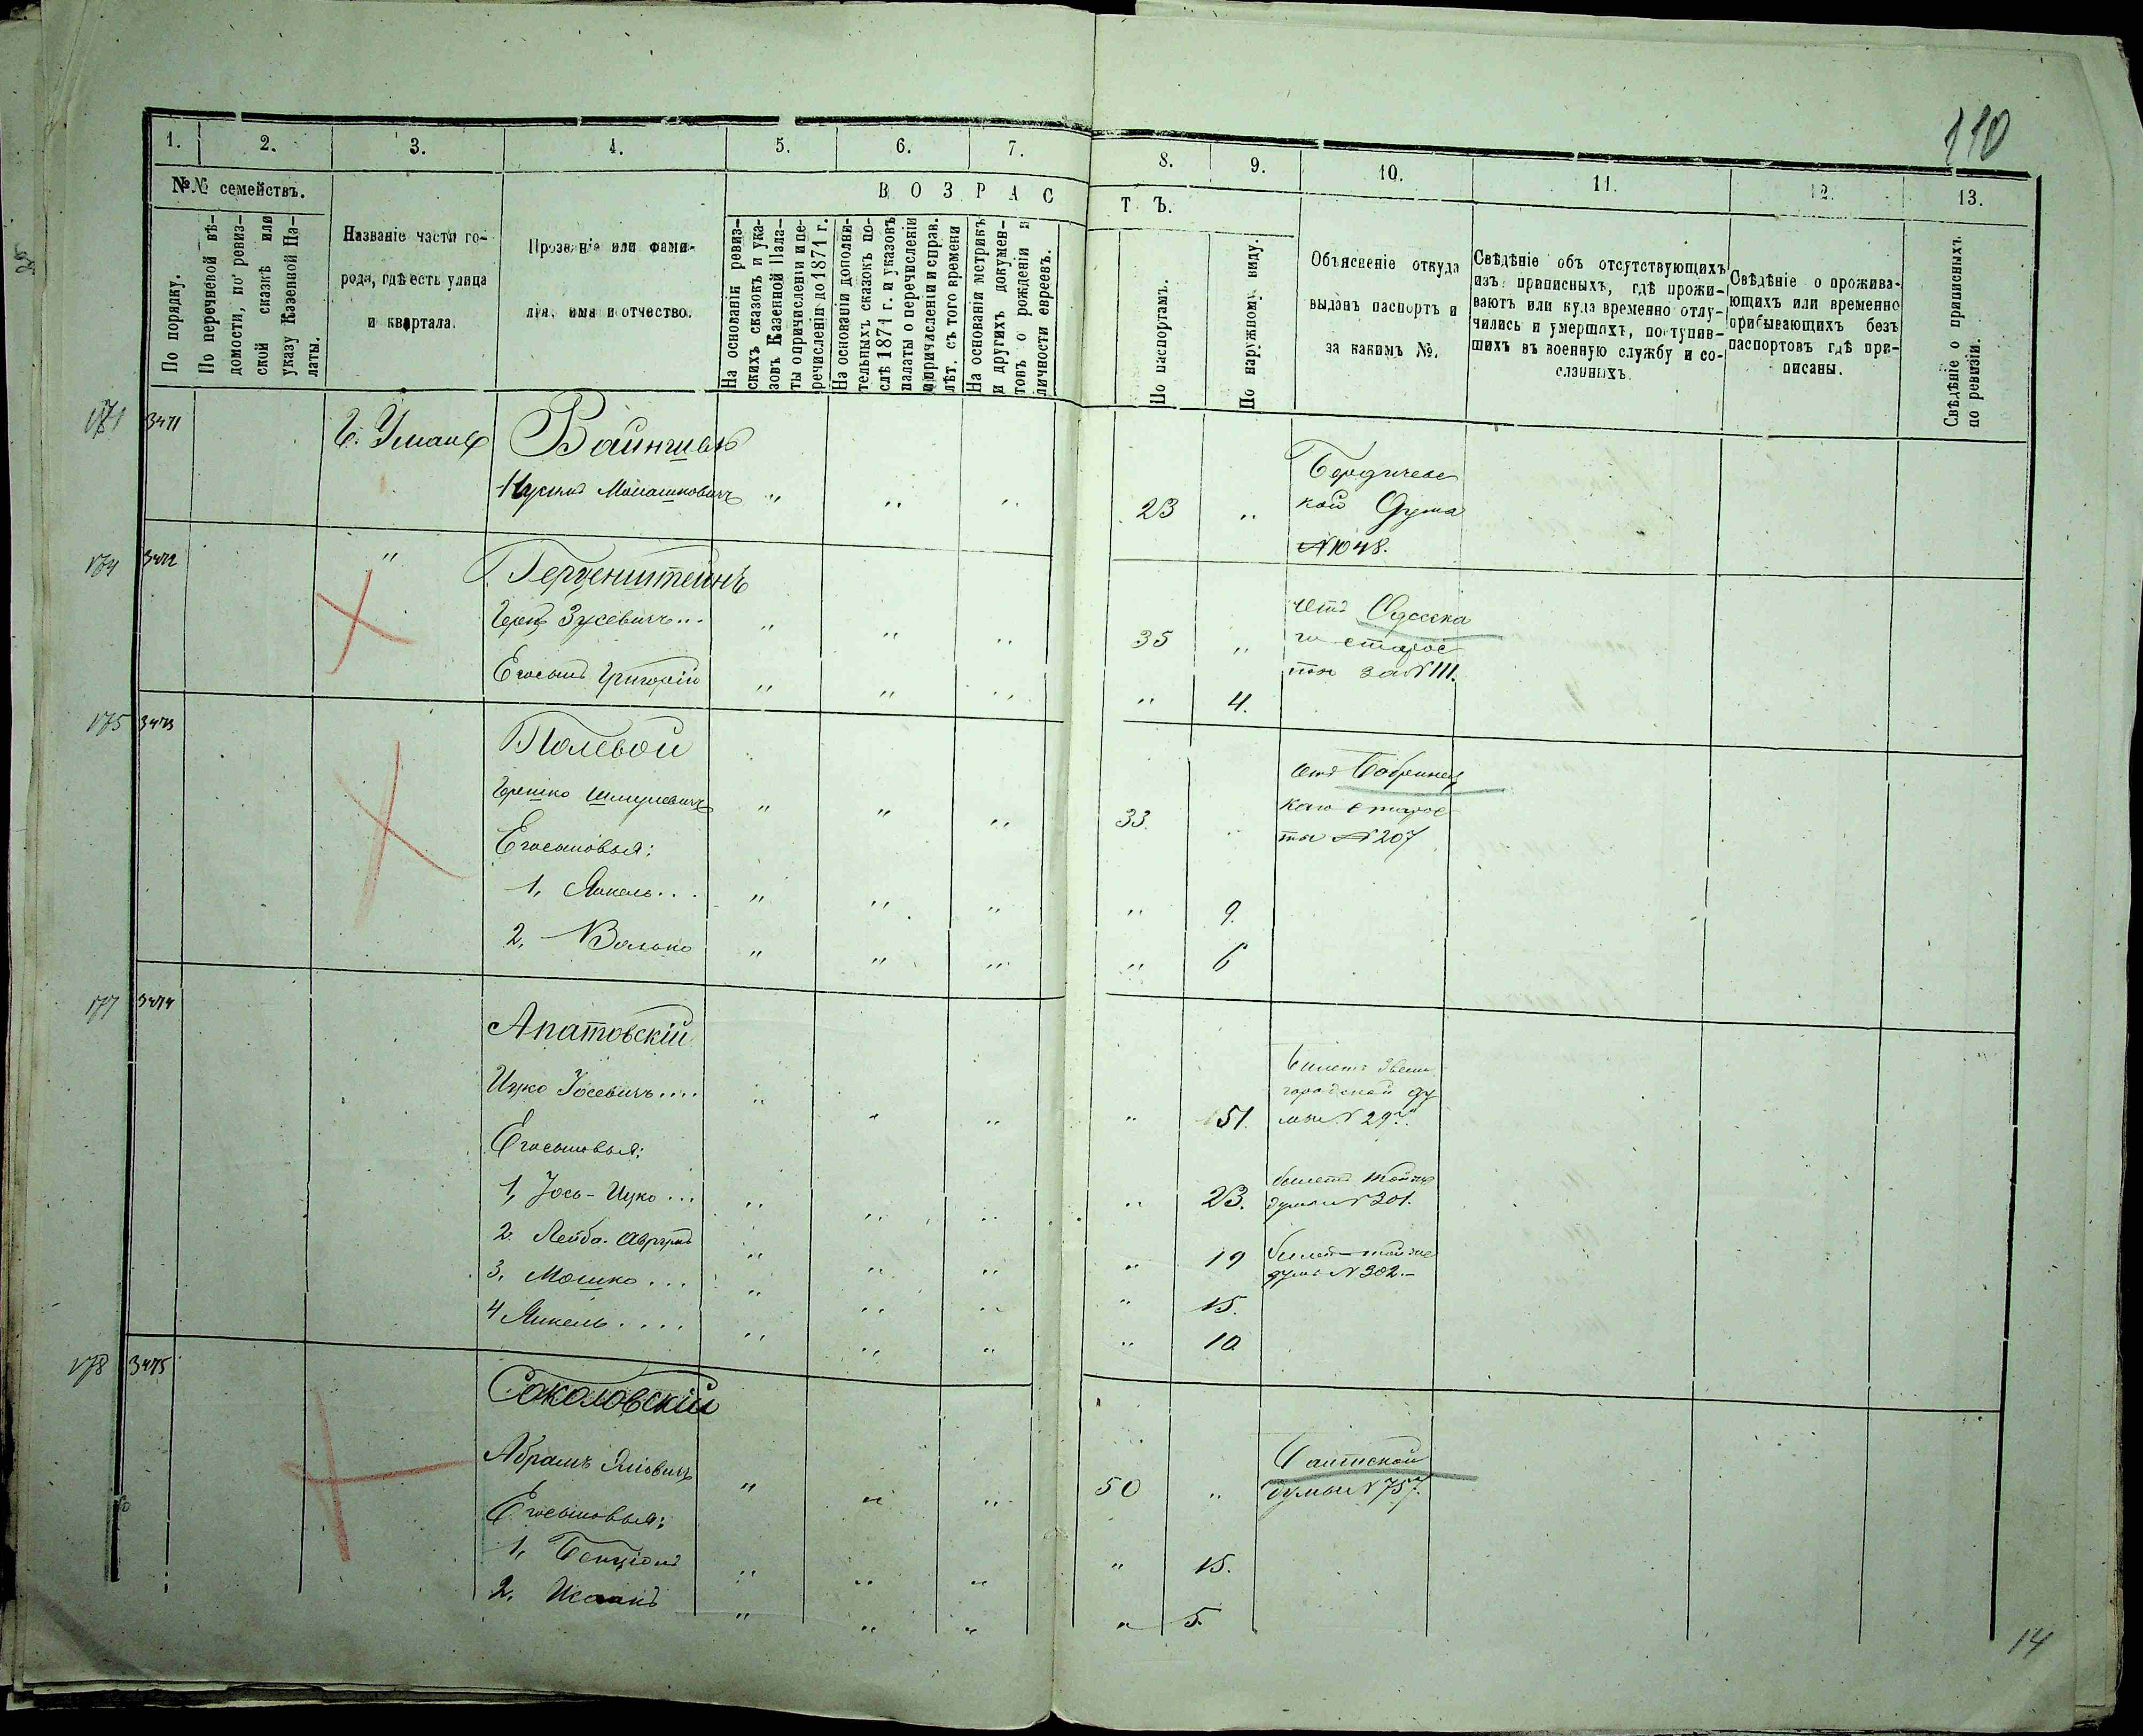 110
1. 2. 3. 4. 5. 6. 7. 8. 9. 10. 11. 12. 13.
№№ семействъ.
По порядку.
По перечневой вѣ-
домости, по ревиз-
ской сказкѣ или
указу Казенной Па-
латы.
Названіе части го-
рода, гдѣ есть улица
и квартала.
Прозваніе или фами-
лія, имя и отчество.
ВОЗРАСТЪ.
На основаніи ревиз-
скихъ сказокъ и ука-
зовъ Казенной Пала-
ты о причисленіи и пе-
речисленіи до 1874 г.
На основаніи дополни-
тельныхъ сказокъ по-
слѣ 1874 г. и указокъ
палаты о перечисленіи
и причисленіи и справ.
лѣт. съ того времени
На основаніи метрикъ
и другихъ докумен-
товъ о рожденіи и
личности евреевъ.
По паспортамъ.
По наружному виду.
Объясненіе откуда
выданъ паспортъ и
за какимъ №.
Свѣдѣніе объ отсутствующихъ
изъ приписныхъ, гдѣ прожи-
ваютъ или куда временно отлу-
чились и умершихъ, поступив-
шихъ въ военную службу и со-
сланныхъ.
Свѣдѣніе о прожива-
ющихъ или временно
прибывающихъ безъ
паспортовъ гдѣ при-
писаны.
Свѣдѣніе о приписныхъ
по ревизіи.
3471 Г. Умань
Мошковичъ " " " 23 "
Бердичевс
кой Дума
№ 1048.
3472 " Герценштейнъ
Герц Зусевичъ... " " " 35 "
отъ Одесска
го старос
ты за № 111.
Егосынъ Григорій " " " " 4.
175 3473 Полевой
Гершко Шмулевичъ " " " 33. "
отъ Бобринец
каго старос
ты № 207
Егосыновья:
1, Янкель... " " " " 9.
2, Волько " " " " 6
177 3474 Апатовскій
Ицко Іосевичъ.... " " " " 51.
билетъ Звени
городской ду
мы № 29
Егосыновья:
1, Іось-Ицко... " " " " 23.
билетъ тойже
думы № 301.
2. Лейба " " " " 19
билетъ тойже
думы № 302.-
3, Мошко... " " " " 15.
4 Янкель.... " " " " 10
178 3475 Соколовскій
Абрамъ " " " 50 "
думы № 757.
Егосыновья:
1, Бенціонъ " " " " 15.
2, Исаакъ " " " " 5.
14